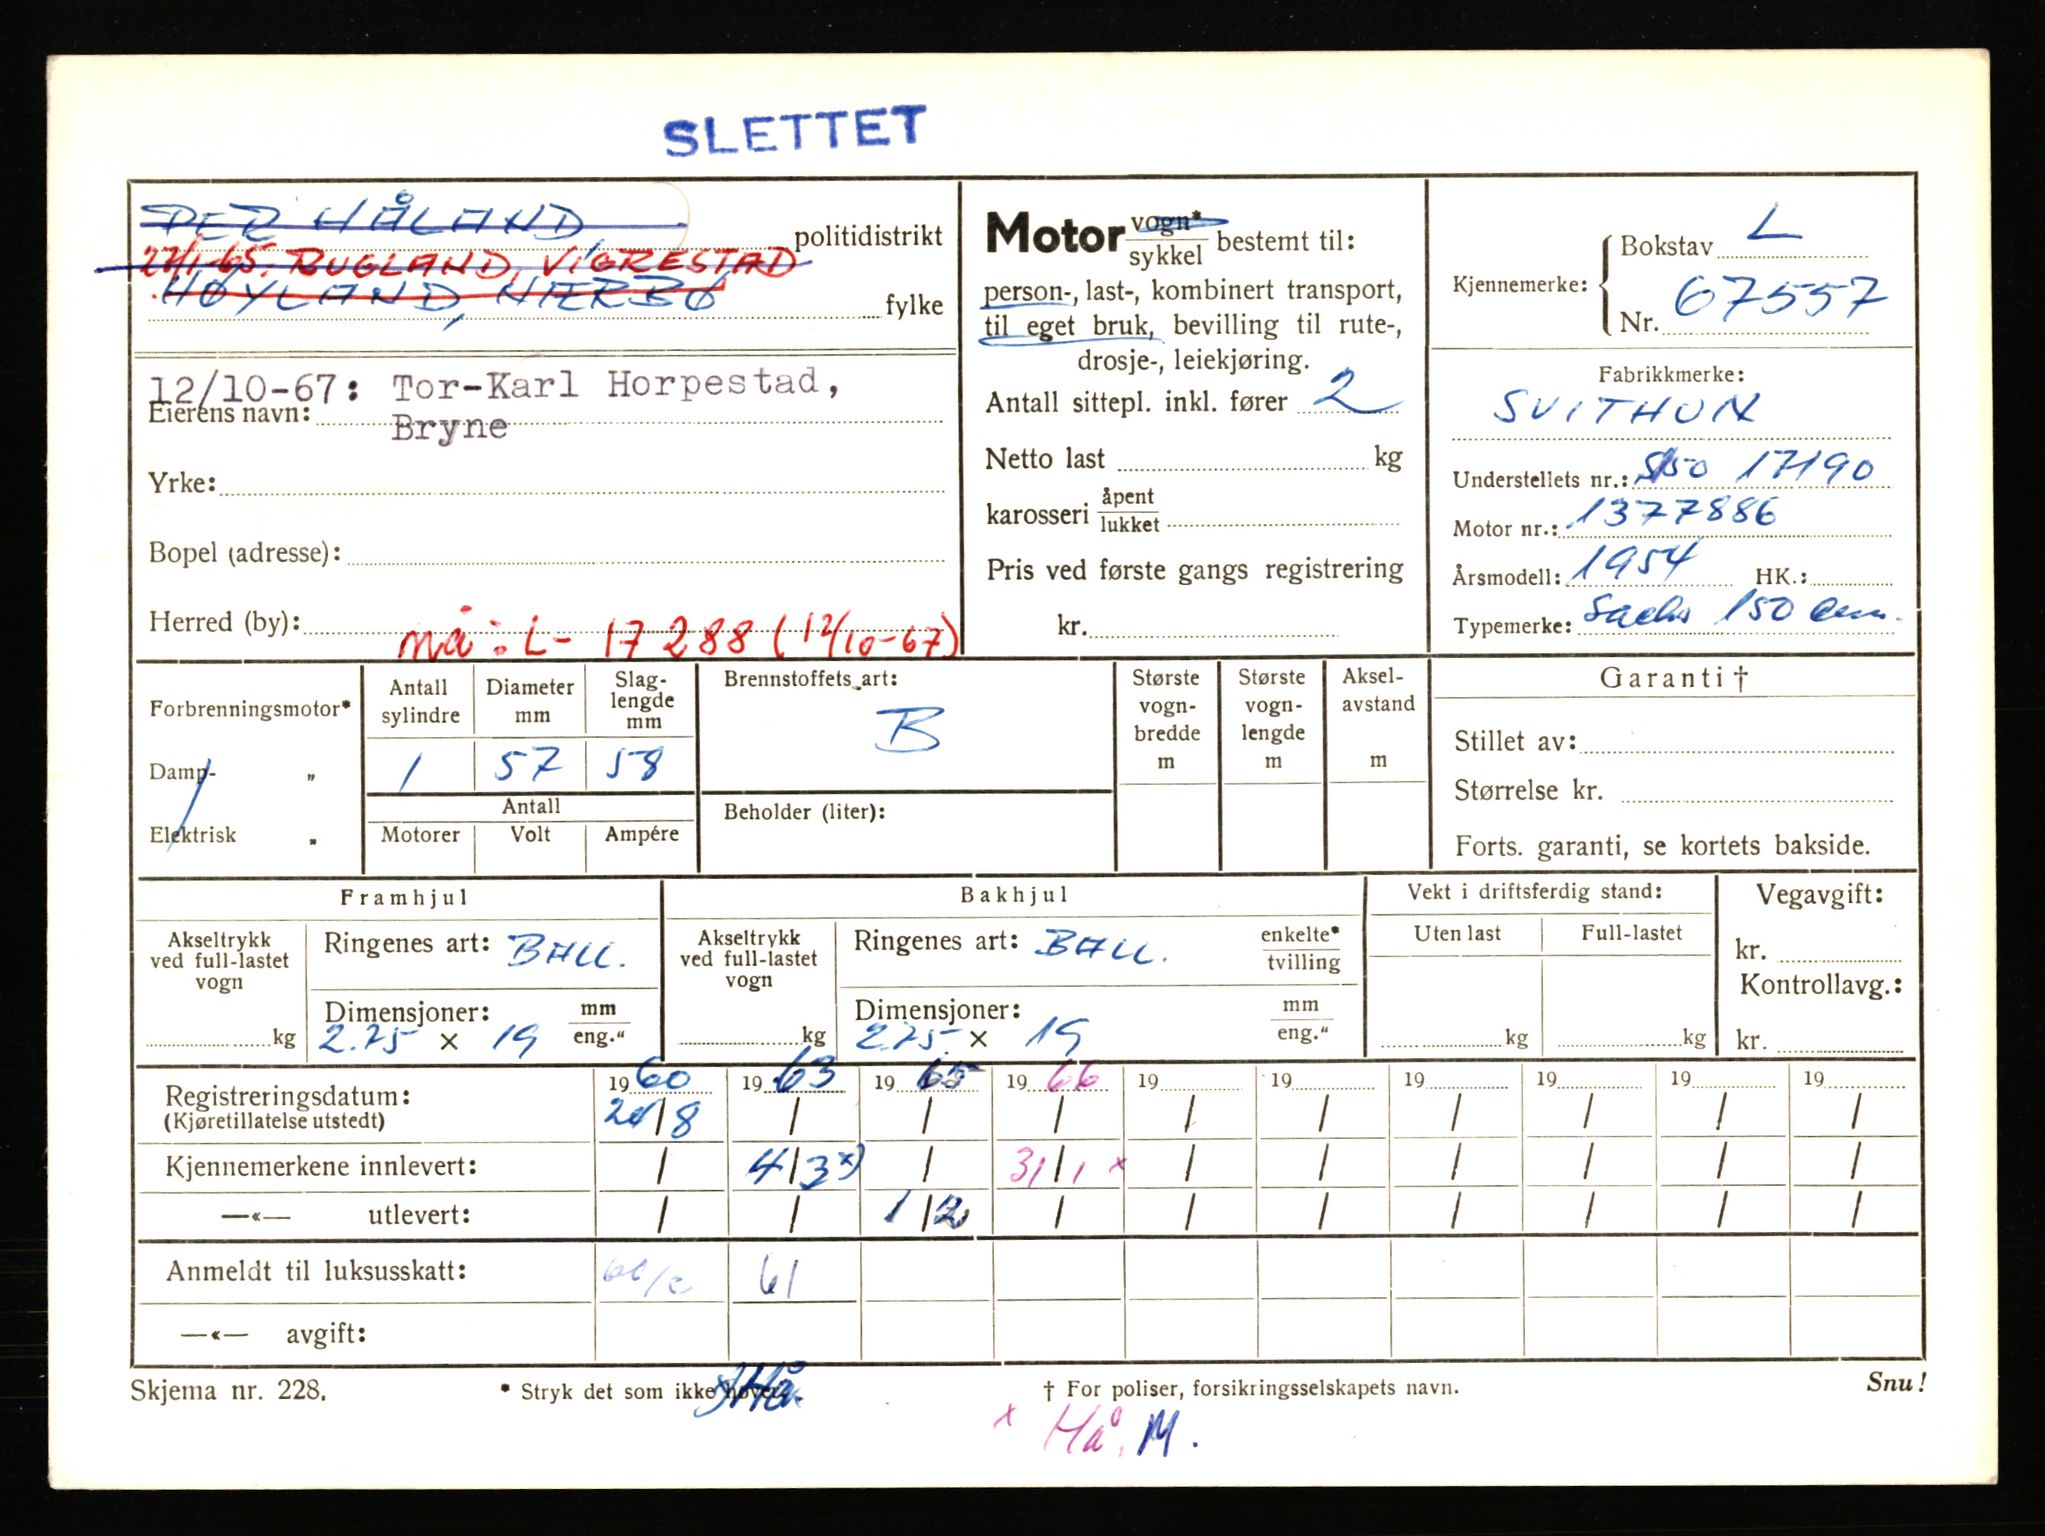 SLETTET
PER HÅLAND
politidistrikt
27/1-65. RUGLAND, VIGRESTAD
HØYLAND, NÆRBØ
fylke
12/10-67: Tor-Karl Horpestad,
Eierens navn:
Bryne
Yrke:
Bopel (adresse):
Herred (by):
nå: L- 17288 (12/10-67)
Motor vogn* sykkel bestemt til:
person-, last-, kombinert transport,
til eget bruk, bevilling til rute-,
drosje-, leiekjøring.
Antall sittepl. inkl. fører 2
Netto last kg
karosseri åpent lukket
Pris ved første gangs registrering
kr.
Kjennemerke:
Bokstav L
Nr. 67557
Fabrikkmerke:
SVITHUN
Understellets nr.: S150 17190
Motor nr.: 1377886
Årsmodell: 1954 HK.:
Typemerke: Sachs 150 ccm.
Forbrenningsmotor*
Damp- „
Elektrisk „
Antall sylindre
Diameter mm
Slag-lengde mm
1 57 58
Antall
Motorer Volt Ampére
Brennstoffets art:
B
Beholder (liter):
Største vogn-bredde m
Største vogn-lengde m
Aksel-avstand m
Garanti †
Stillet av:
Størrelse kr.
Forts. garanti, se kortets bakside.
Framhjul
Akseltrykk ved full-lastet vogn
kg
Ringenes art: BALL.
Dimensjoner: mm eng."
2.75 x 19
Bakhjul
Akseltrykk ved full-lastet vogn
kg
Ringenes art: BALL. enkelte* tvilling
Dimensjoner: mm eng."
2.75 x 19
Vekt i driftsferdig stand:
Uten last Full-lastet
kg kg
Vegavgift:
kr.
Kontrollavg.:
kr.
19 60 19 63 19 65 19 66 19 19 19 19 19 19
Registreringsdatum:
(Kjøretillatelse utstedt)
/8 / / / / / / / / /
Kjennemerkene innlevert: / 4/3 x) / 31/1 x / / / / / /
—«— utlevert: / / 1/2 / / / / / / /
Anmeldt til luksusskatt: 61
—«— avgift:
Skjema nr. 228.
* Stryk det som ikke høver.
x) Hå.
† For poliser, forsikringsselskapets navn.
Snu!
x Hå. M.